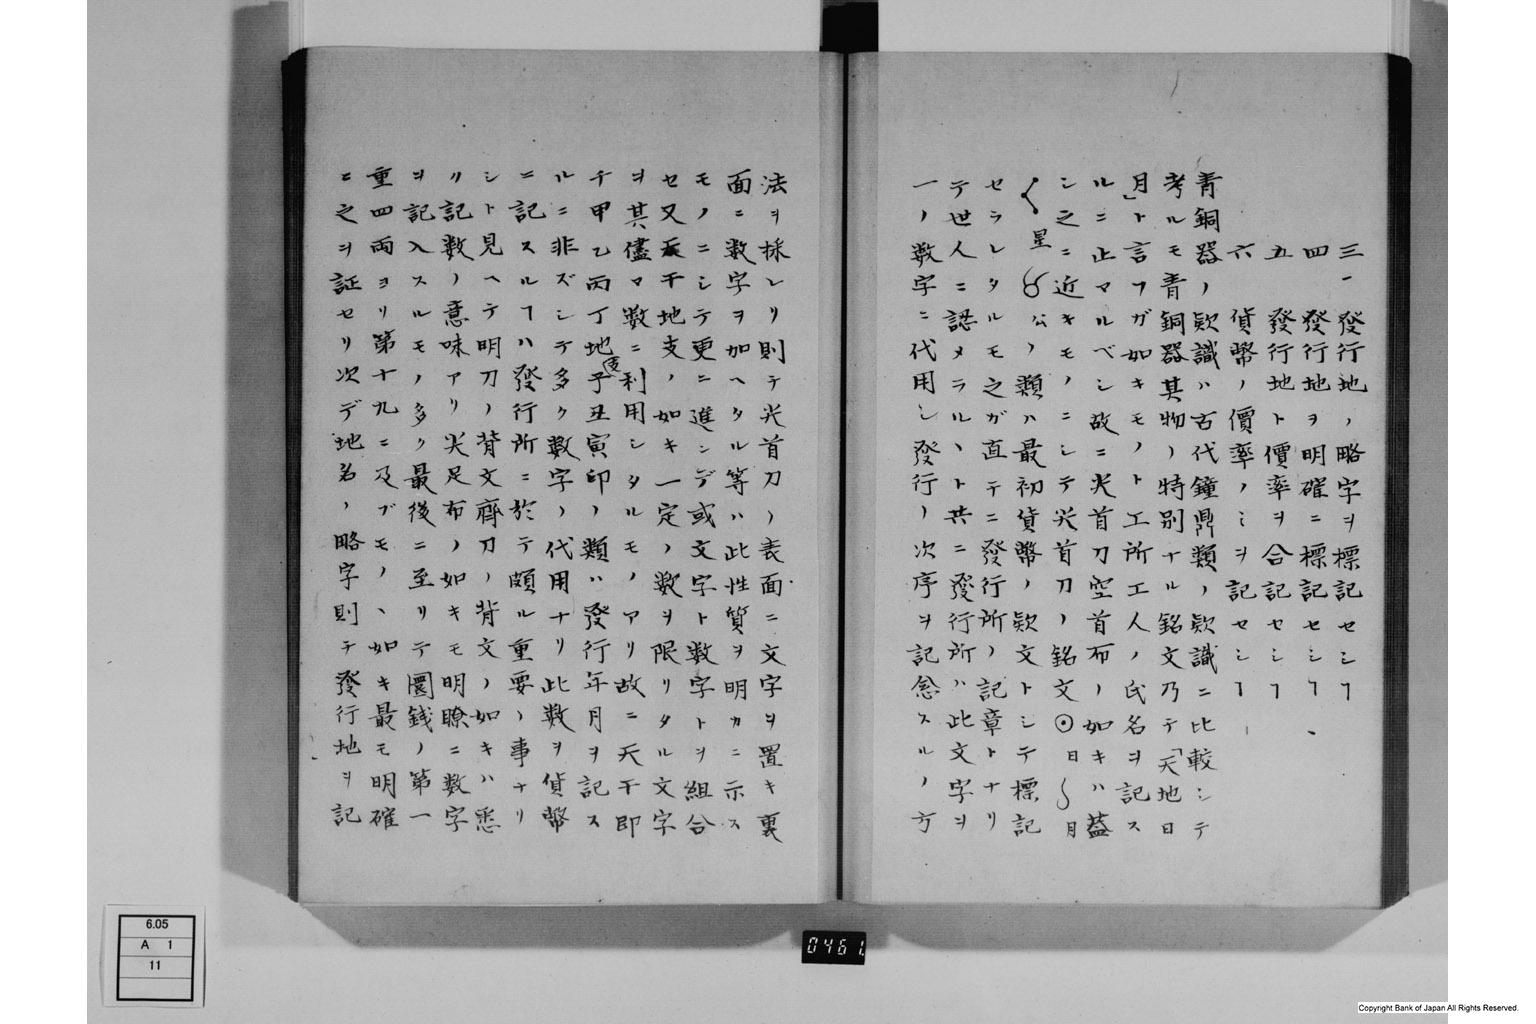 三、發行地ノ略字ヲ標記セシヿ
四 發行地ヲ明確ニ標記セシヿ、
五 發行地ト價率ヲ合記セシヿ
六 貨幣ノ價率ノミヲ記セシヿ
青銅器ノ欵識ハ古代鐘鼎類ノ欵識ニ比較シテ
考ルモ青銅器其物ノ特別ナル銘文乃テ「天地日
月」ト言フガ如キモノト工所工人ノ氏名ヲ記ス
ルニ止マルベシ故ニ尖首刀空首布ノ如キハ蓋
シ之ニ近キモノニシテ尖首刀ノ銘文⊙日 月
星 公ノ類ハ最初貨幣ノ欵文トシテ標記
セラレタルモ之ガ直テニ發行所ノ記章トナリ
テ世人ニ認メラルヽト共ニ發行所ハ此文字ヲ
一ノ数字ニ代用シ發行ノ次序ヲ記念スルノ方
法ヲ採レリ則テ尖首刀ノ表面ニ文字ヲ置キ裏
面ニ数字ヲ加ヘタル等ハ此性質ヲ明カニ示ス
モノニシテ更ニ進ンデ或文字ト数字トヲ組合
セ又天干地支ノ如キ一定ノ数ヲ限リタル文字
ヲ其儘マ数ニ利用シタルモノアリ故ニ天干即
チ甲乙丙丁地支子丑寅印ノ類ハ發行年月ヲ記ス
ルニ非ズシテ多ク数字ノ代用ナリ此数ヲ貨幣
ニ記スルヿハ發行所ニ於テ頗ル重要ノ事ナリ
シト見ヘテ明刀ノ背文齊刀ノ背文ノ如キハ悉
リ記数ノ意味アリ尖足布ノ如キモ明瞭ニ数字
ヲ記入スルモノ多ク最後ニ至リテ圜銭ノ第一
重四両ヨリ第十九ニ及ブモノヽ如キ最モ明確
ニ之ヲ証セリ次デ地名ノ略字則テ發行地ヲ記
6.05
A 1
11
0461
Copyright Bank of Japan All Rights Reserved.